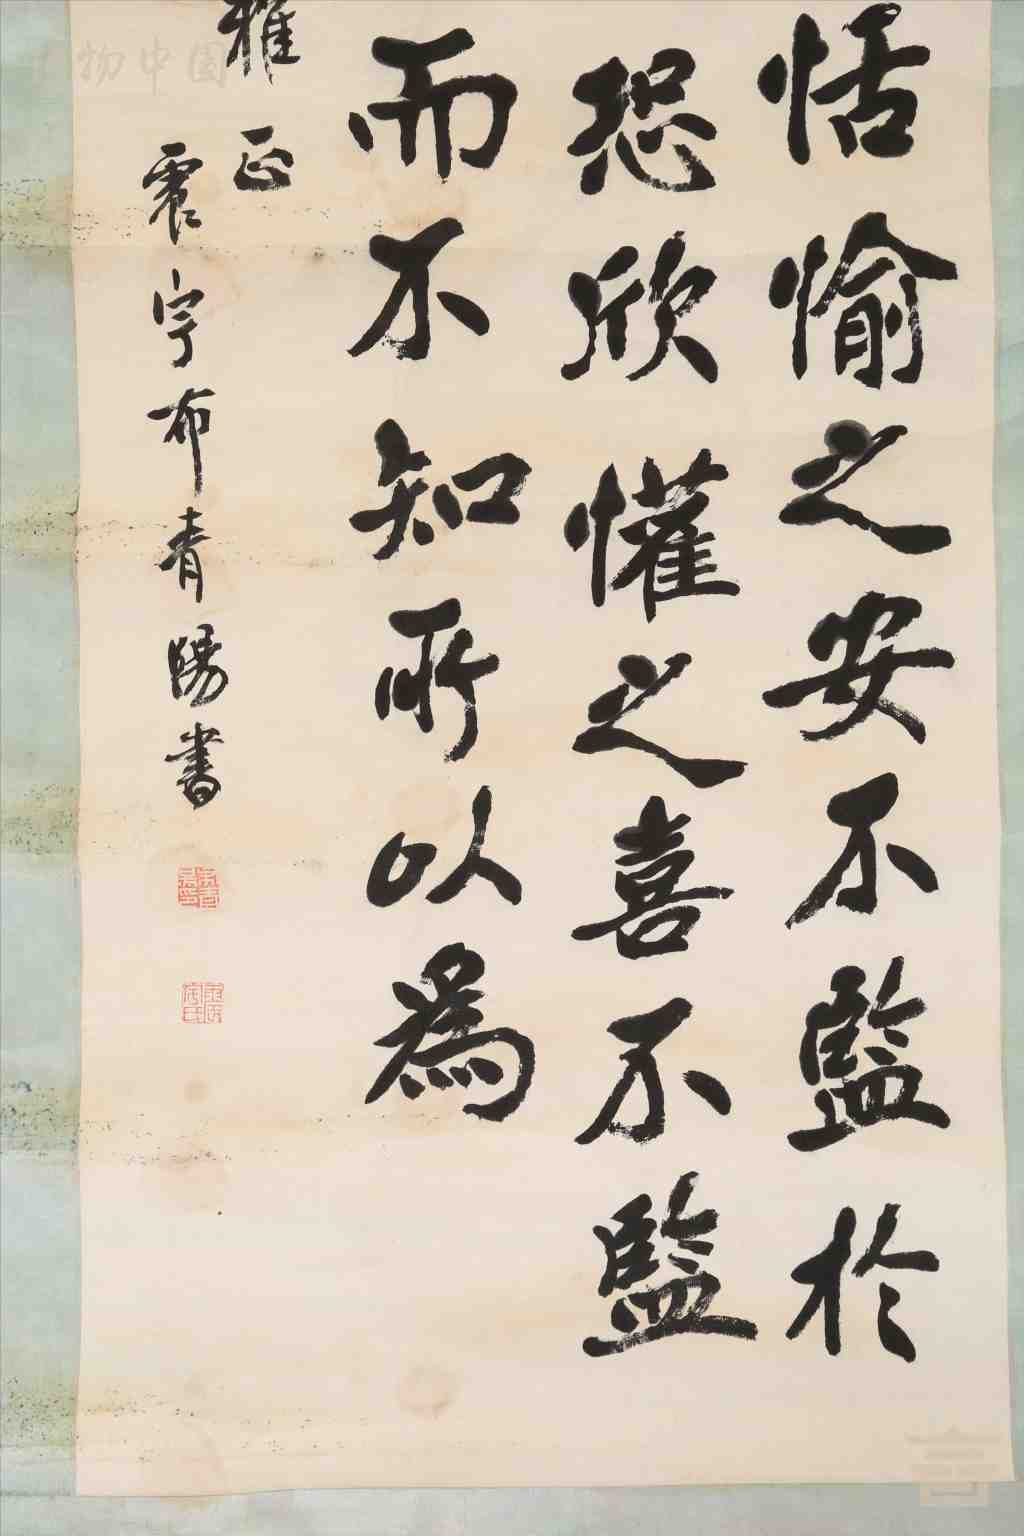 恬愉之安不監於
恐欣懽之喜不監
而不知所以為
雅正
震宇布青陽書